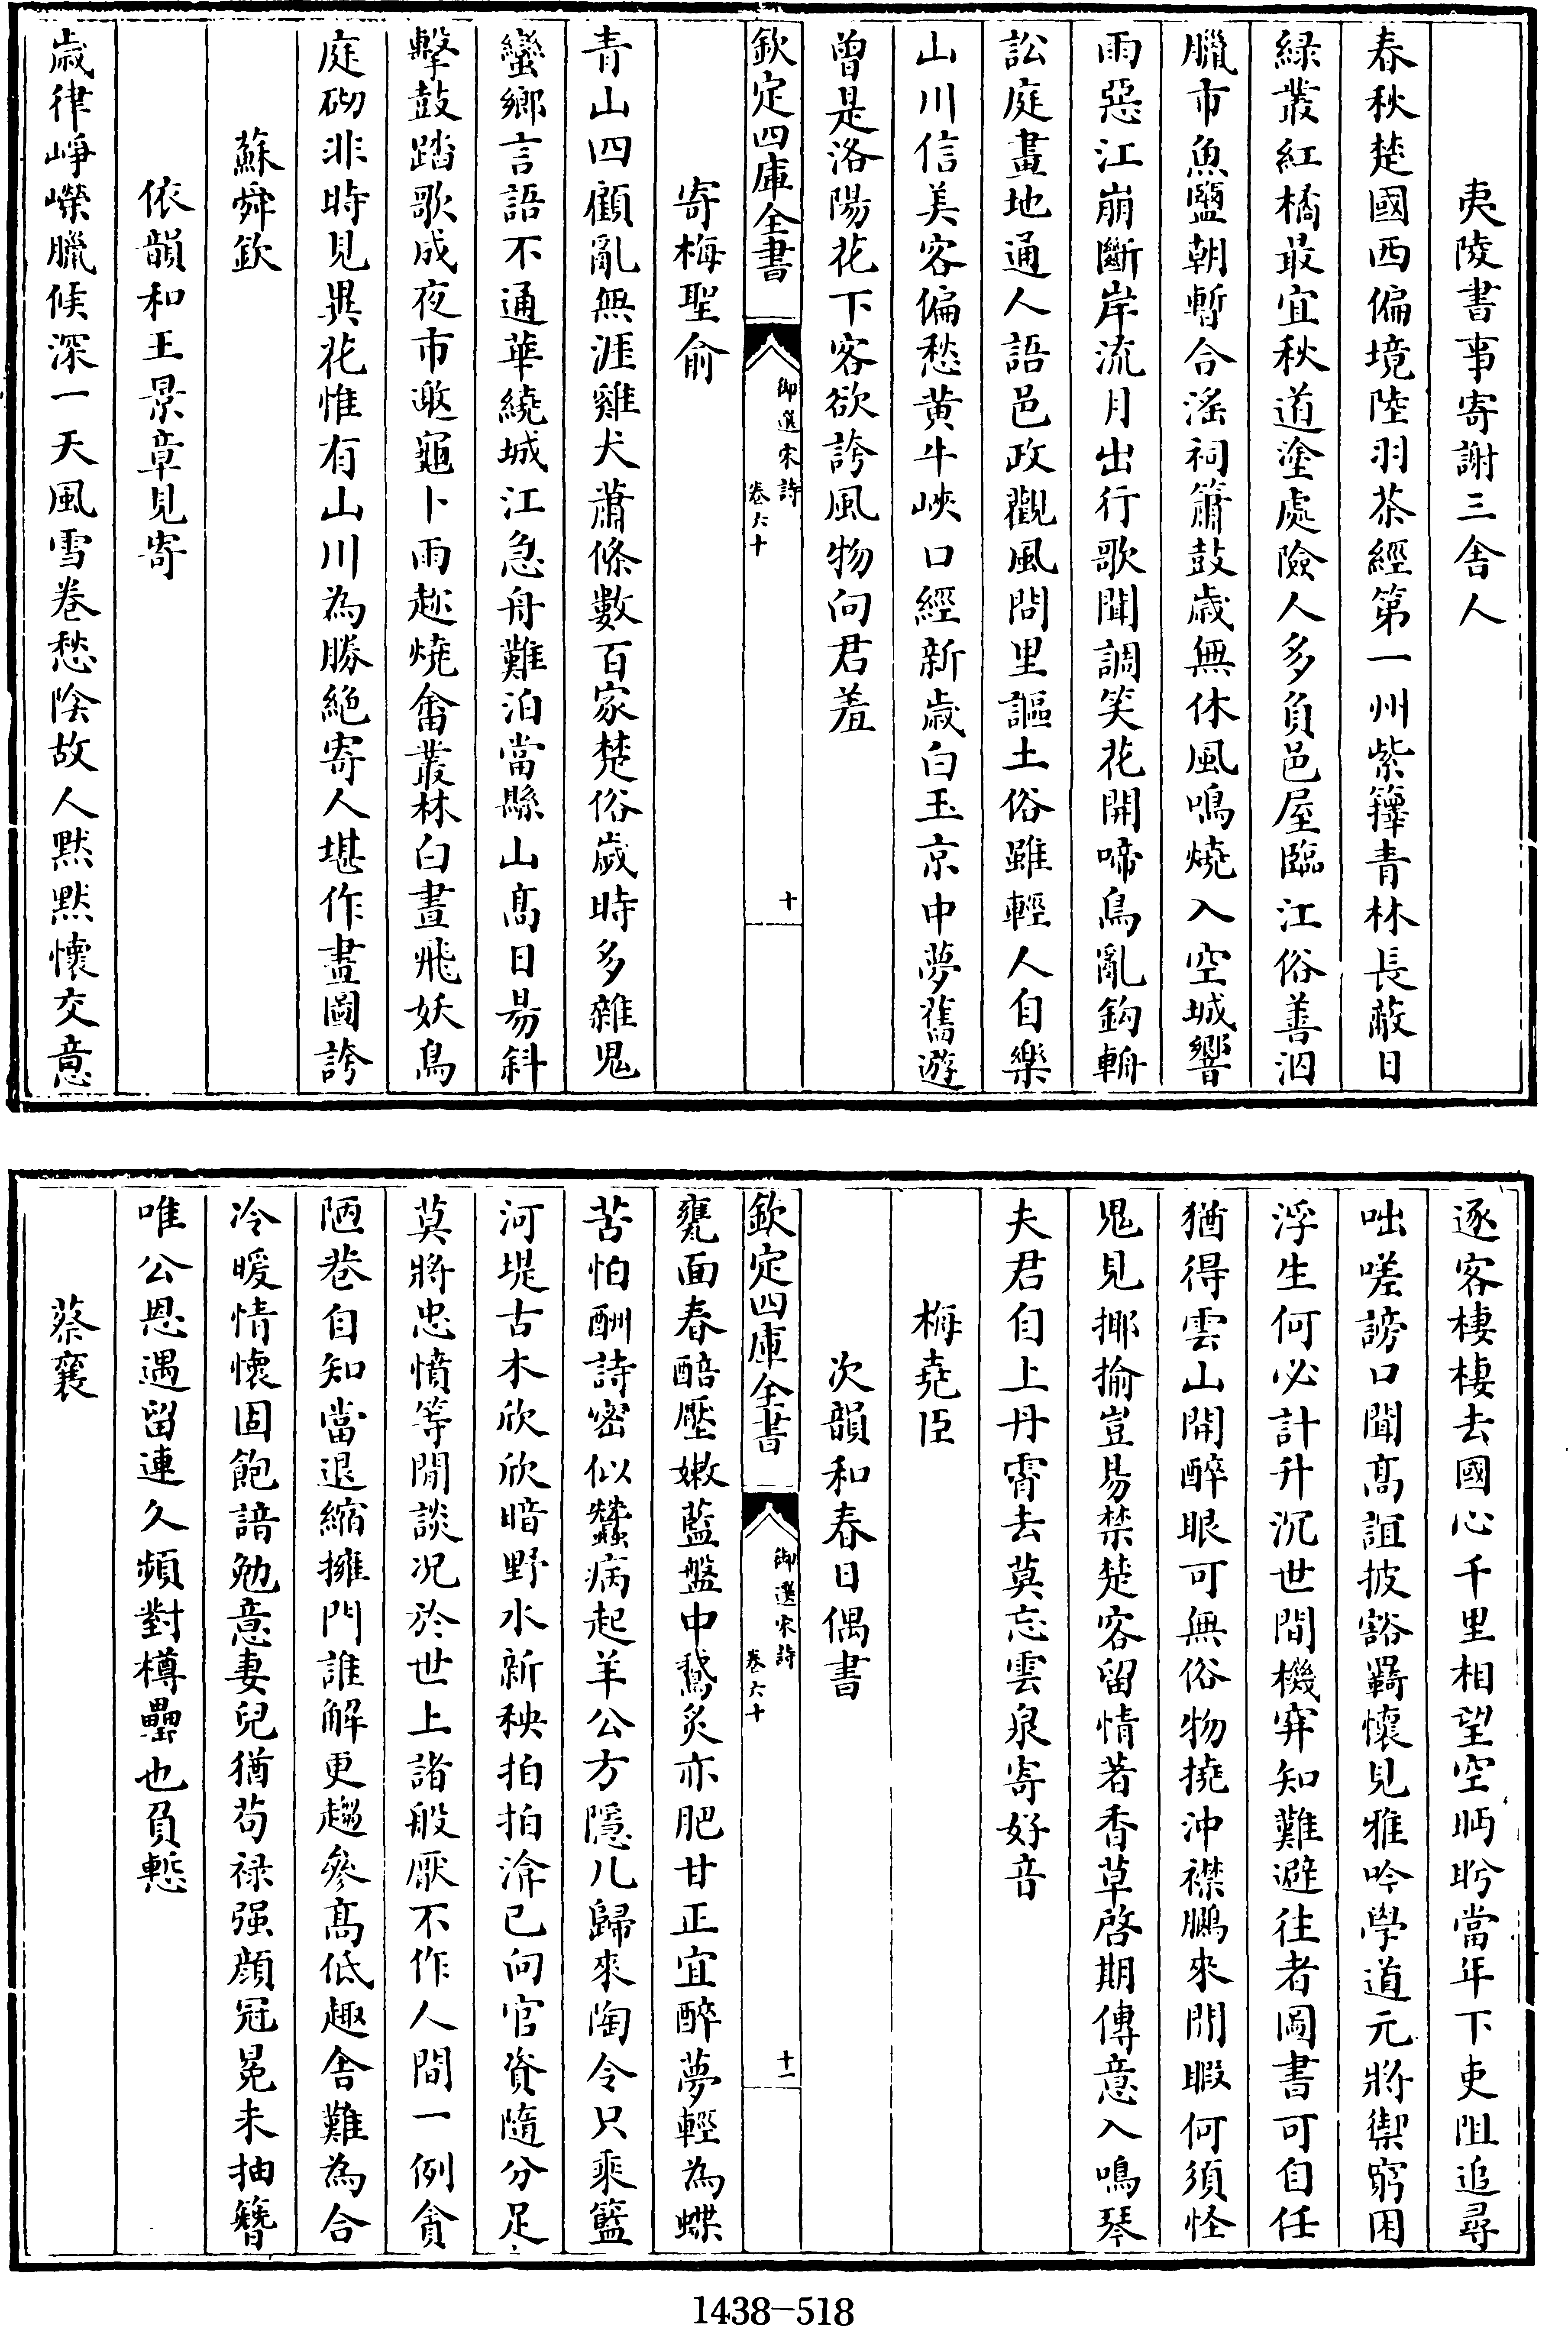 夷陵書事寄謝三舍人
春秋楚國西偏境陸羽茶經第一州紫籜青林長蔽日
緑叢紅橘最宜秋道塗處險人多負邑屋臨江俗善泅
臘市魚鹽朝暫合淫祠簫鼓歳無休風鳴燒入空城響
雨惡江崩斷岸流月出行歌聞調笑花開啼鳥亂鈎輈
訟庭畫地通人語邑政觀風問里謳土俗雖輕人自樂
山川信美客偏愁黄牛峽口經新歳白玉京中夢舊遊
曾是洛陽花下客欲誇風物向君羞
欽定四庫全書
御選宋詩
卷六十
十
寄梅聖俞
青山四顧亂無涯雞犬蕭條數百家楚俗歲時多雜鬼
蠻鄉言語不通華繞城江急舟難泊當縣山髙日易斜
擊鼓踏歌成夜市邀龜卜雨趂燒畬叢林白晝飛妖鳥
庭砌非時見異花惟有山川為勝絶寄人堪作畫圖誇
蘇舜欽
依韻和王景章見寄
歳律崢嶸臘候深一天風雪卷愁陰故人黙黙懷交意
逐客棲棲去國心千里相望空眄盻當年下吏阻追尋
咄嗟謗口聞髙誼披豁羇懷見雅吟學道元將禦窮困
浮生何必計升沉世間機穽知難避往者圖書可自任
猶得雲山開醉眼可無俗物撓沖襟鵬來閒暇何須怪
鬼見揶揄豈易禁楚客留情著香草啓期傳意入鳴琴
夫君自上丹霄去莫忘雲泉寄好音
梅堯臣
次韻和春日偶書
欽定四庫全書
御選宋詩
卷六十
十一
甕面春醅壓嫩藍盤中鵞炙亦肥甘正宜醉夢輕為蝶
苦怕酬詩密似蠶病起羊公方隱几歸來陶令只乘籃
河堤古木欣欣暗野水新秧拍拍渰已向官資隨分足
莫將忠憤等閒談况於世上諸般厭不作人間一例貪
陋巷自知當退縮擁門誰解更趨參髙低趣舍難為合
冷暖情懷固飽諳勉意妻兒猶苟禄强顔冠冕未抽簪
唯公恩遇留連久頻對樽罍也負慙
蔡襄
1438—518